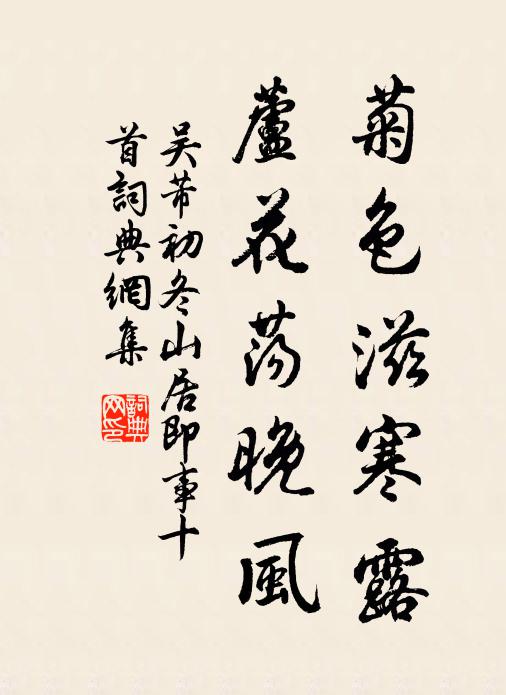 菊色滋寒露
蘆花蕩晚風
吴芾初冬山居即事十
首詞典網集
詞典
网印